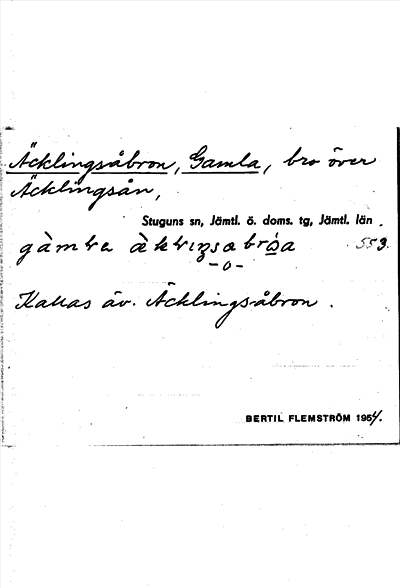 Äcklingsåbron, Gamla, bro över
Äcklingsån,
Stuguns sn, Jämtl. ö. doms. tg, Jämtl. län
553.
-o-
Kallas äv. Äcklingsåbron.
BERTIL FLEMSTRÖM 1954.